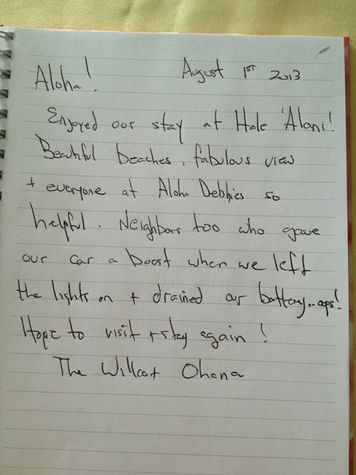 August 1ST 2013
Aloha!
Enjoyed our stay at Hale 'Alani!
Beautiful beaches, fabulous view
+ everyone at Aloha Debbies so
helpful. Neighbors too who gave
our car a boost when we left
the lights on + drained our battery...oops!
Hope to visit + stay again!
The Willcot Ohana